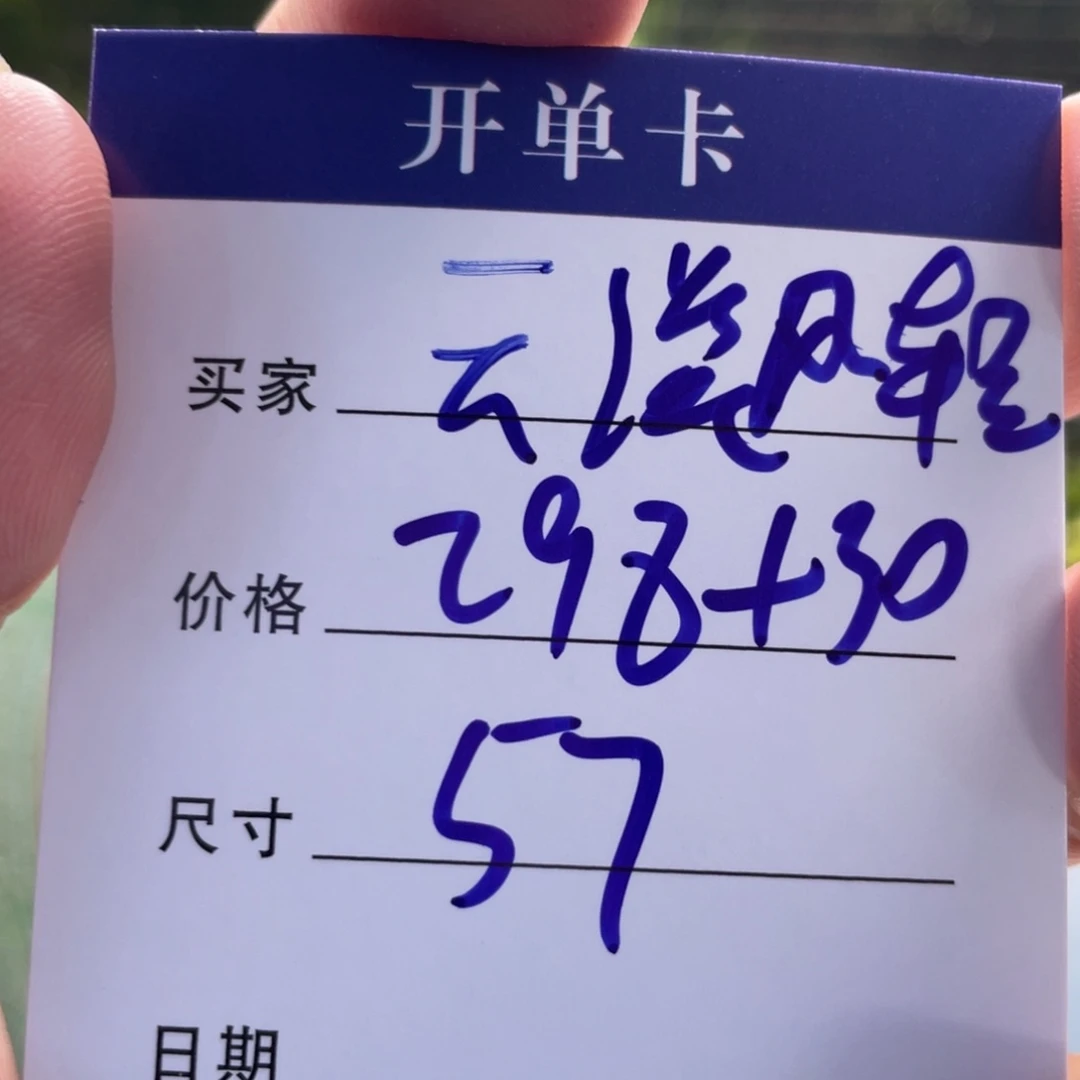 开单卡
买家 云 风
价格 298+30
尺寸 57
日期